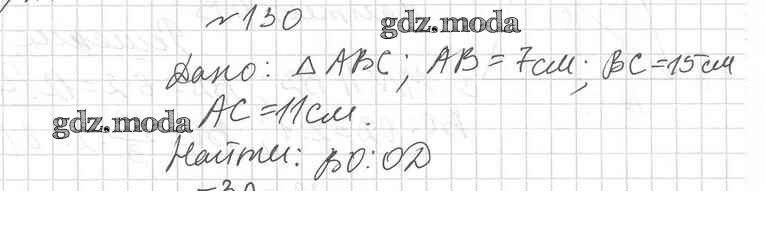 №130
gdz.moda
Дано: △ABC; AB = 7см; BC = 15см
gdz.moda
AC = 11см.
Найти: BO:OD